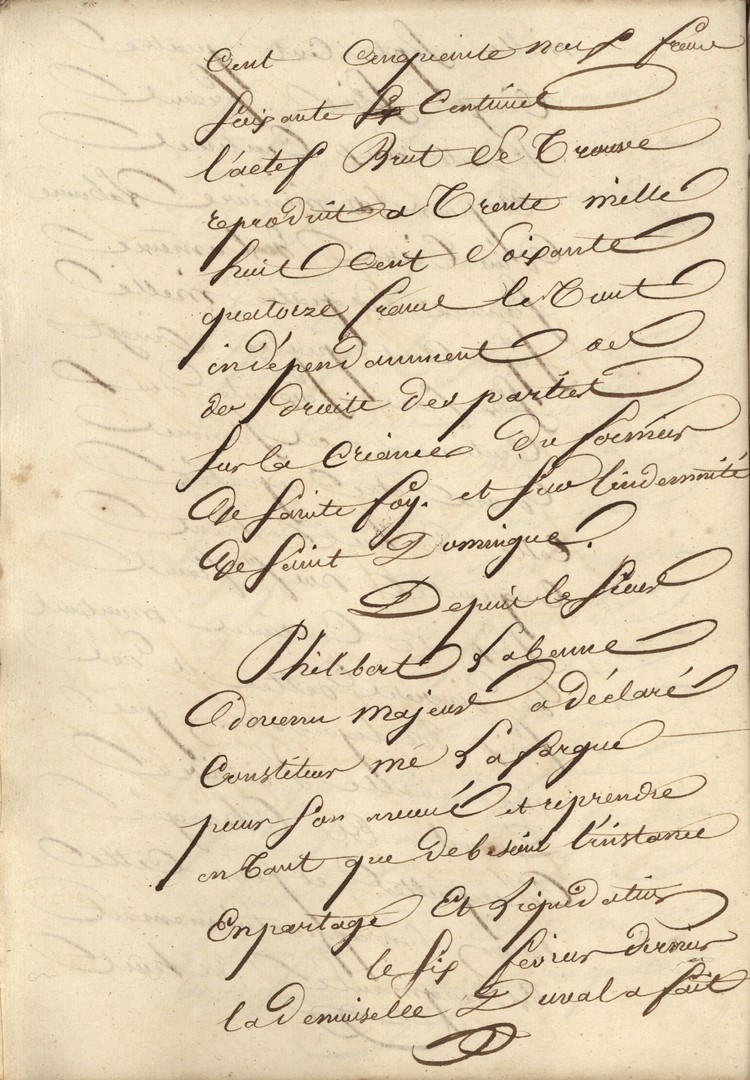 Cent Cinquante neuf francs
soixante Centimes
l'actif Brut Se Trouve
reproduit a Trente mille
huit Cent Soixante
quatorze francs le Tout
indépendamment
des droits des parties
sur la Créance du fermier
de Sainte foy. et sur l'indemnité
de Saint Domingue.
Depuis le sieur
Philibert Labenne
devenu majeur a déclaré
Constituer me Lafargue
pour son avoué et reprendre
en tant que de besoin l'instance
En partage Et Liquidation
le six fevrier dernier
la demoiselle Duval a fait